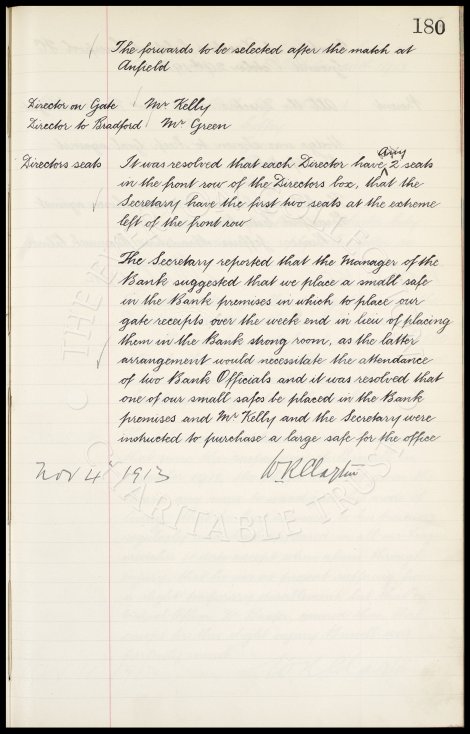 180
The forwards to be selected after the match at
Anfield
Director on Gate Mr Kelly
Director to Bradford Mr Green
Directors seats It was resolved that each Director have any 2 seats
in the front row of the Directors box, that the
Secretary have the first two seats at the extreme
left of the front row
The Secretary reported that the Manager of the
Bank suggested that we place a small safe
in the Bank premises in which to place our
gate receipts over the week end in lieu of placing
them in the Bank strong room, as the latter
arrangement would necessitate the attendance
of two Bank Officials and it was resolved that
one of our small safes be placed in the Bank
premises and Mr Kelly and the Secretary were
instructed to purchase a large safe for the office
Nov 4th 1913 W R Clayton
CHARITABLE TRUST